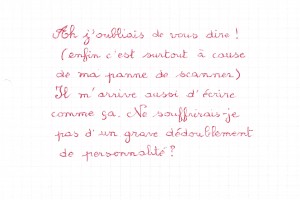 Ah j'oubliais de vous dire !
(enfin c'est surtout à cause
de ma panne de scanner)
Il m'arrive aussi d'écrire
comme ça. Ne souffrirais-je
pas d'un grave dédoublement
de personnalité ?